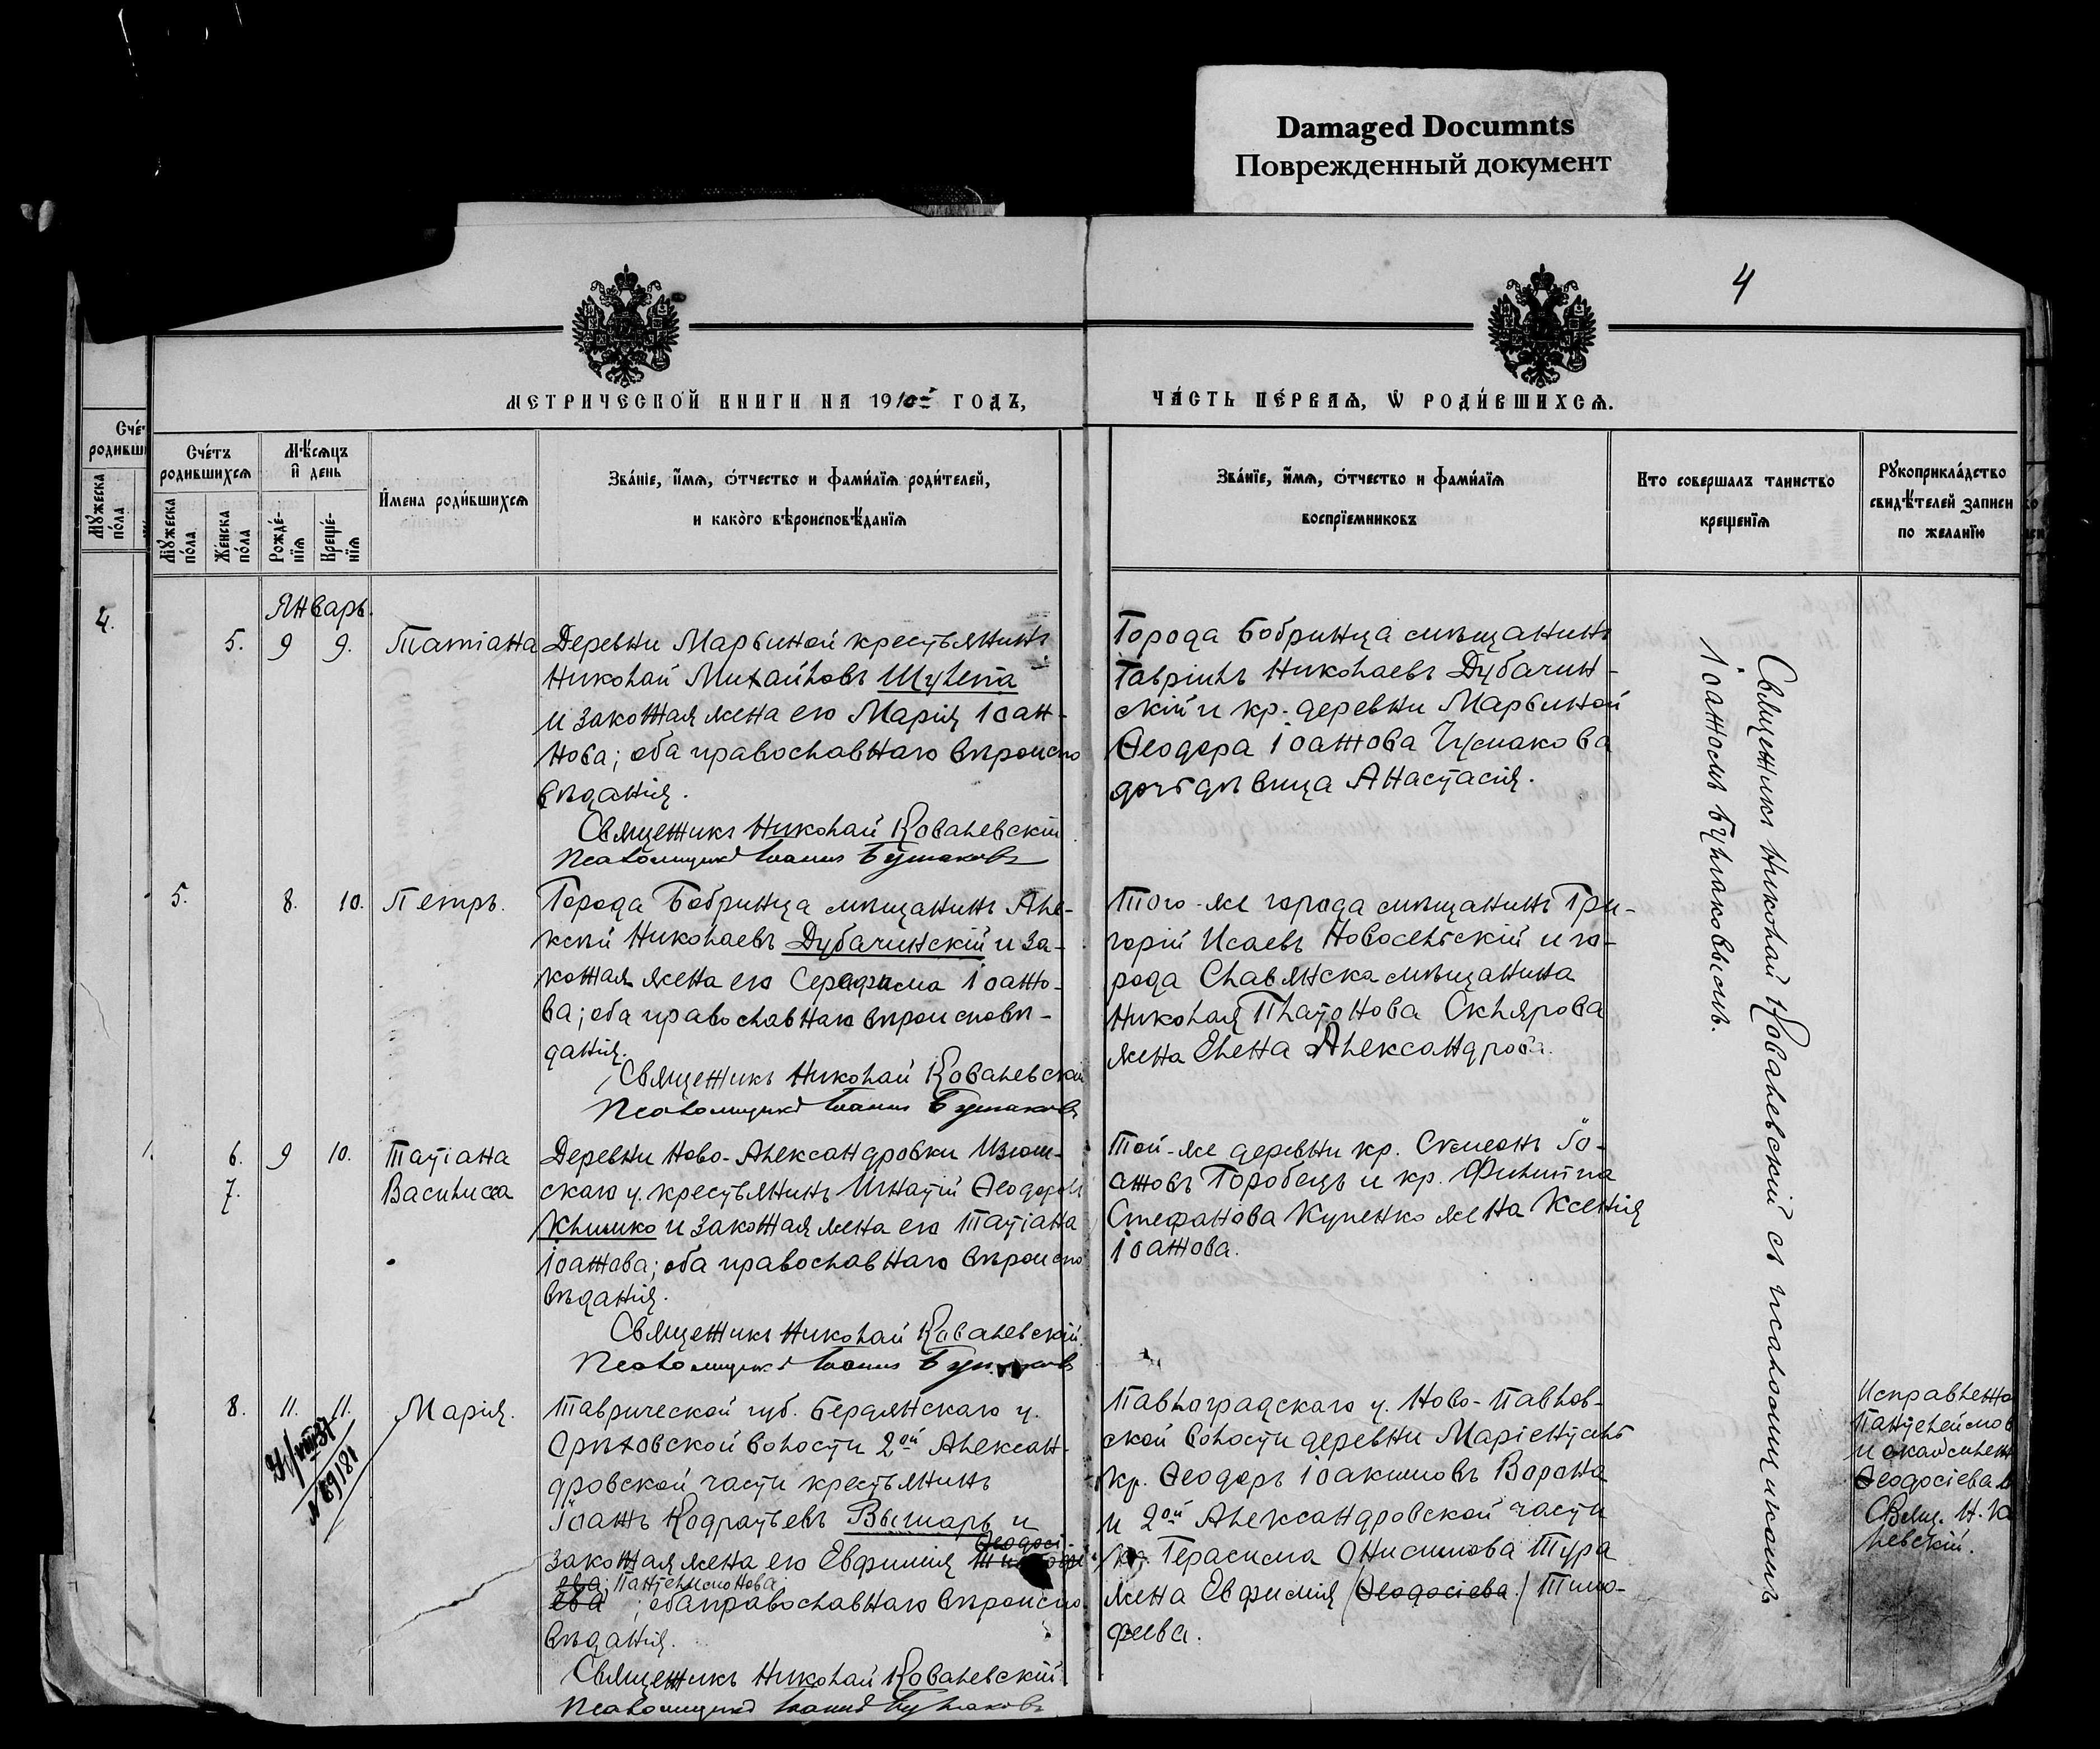 Damaged Documnts
Поврежденный документ
4
МЕТРИЧЕСКОЙ КНИГИ НА 1910й ГОДЪ,
ЧА́СТЬ ПЕ́РВАЯ, Ѡ РОДИ́ВШИХСЯ.
Счетъ родившихся
Мужеска пола
Женска пола
Мѣсяцъ и день
Рожденія
Крещенія
Имена родившихся
Званіе, имя, отчество и фамилія родителей,
и какого вѣроисповѣданія
Званіе, имя, отчество и фамилія
воспріемниковъ
Кто совершалъ таинство
крещенія
Рукоприкладство
свидѣтелей записи
по желанію
4.
Январь.
5. 9 9. Татіана
Деревни Марьиной крестьянинъ
Николай Михайловъ Шулепа
и законная жена его Марія Іоан-
нова; оба православнаго вѣроиспо
вѣданія.
Священникъ Николай Ковалевскій
Псаломщикъ Іоаннъ Булаковъ
Города Бобринца мѣщанинъ
Гавріилъ Николаевъ Дубачин-
скій и кр. деревни Марьиной
Ѳеодора Іоаннова Чумакова
дочь дѣвица Анастасія.
5. 8. 10. Петръ.
Города Бобринца мѣщанинъ Але-
ксѣй Николаевъ Дубачинскій и за-
конная жена его Серафима Іоанно-
ва; оба православнаго вѣроисповѣ-
данія.
Священникъ Николай Ковалевскій
Псаломщикъ Іоаннъ Булаковъ
Того-же города мѣщанинъ Гри-
горій Исаевъ Новосельскій и го-
рода Славянска мѣщанина
Николая Платонова Склярова
жена Елена Александрова.
6. 9 10. Татіана
7. Василисса
Деревни Ново-Александровки Изюм-
скаго у. крестьянинъ Игнатій Ѳеодоровъ
Климко и законная жена его Татіана
Іоаннова; оба православнаго вѣроиспо
вѣданія.
Священникъ Николай Ковалевскій
Псаломщикъ Іоаннъ Булаковъ
Той-же деревни кр. Симеонъ Іо-
анновъ Горобецъ и кр. Филиппа
Стефанова Куценко жена Ксенія
Іоаннова.
8. 11. 11. Марія.
№ 89/81
Таврической губ. Бердянскаго у.
Орѣховской волости 2ой Алексан-
дровской части крестьянинъ
Іоаннъ Кодратьевъ Вышарь и
Ѳеодосі-
законная жена его Евфимія
ева; Пантелимонова
ева ; оба православнаго вѣроиспо
вѣданія.
Священникъ Николай Ковалевскій
Псаломщикъ Іоаннъ Булаковъ
Павлоградскаго у. Ново-Павлов-
ской волости деревни Маріенталь
кр. Ѳеодоръ Іоакимовъ Ворона
и 2ой Александровской части
кр. Герасима Онисимова Тура
жена Евфимія (Ѳеодосіева) Тимо-
феева.
Священникъ Николай Ковалевскій съ псаломщикомъ
Іоанномъ Булаковымъ.
Исправленно
Пантелеймов
Ѳеодосіева
Свящ. Н. Ко
левскій.